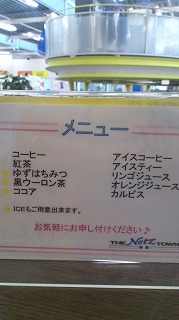 メニュー
コーヒー
紅茶
☆ゆずはちみつ
☆黒ウーロン茶
☆ココア
アイスコーヒー
アイスティー
リンゴジュース
オレンジジュース
カルピス
☆ICEもご用意出来ます。
お気軽にお申し付けください♪
THE Netz TOWN